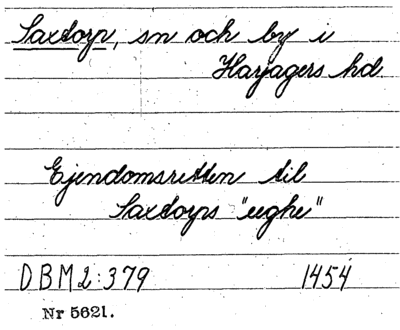 Saxtorp, sn och by i
Harjagers hd.
Ejendomsretten til
Saxtorps "eghe"
DBM2:379 1454
Nr 5621.